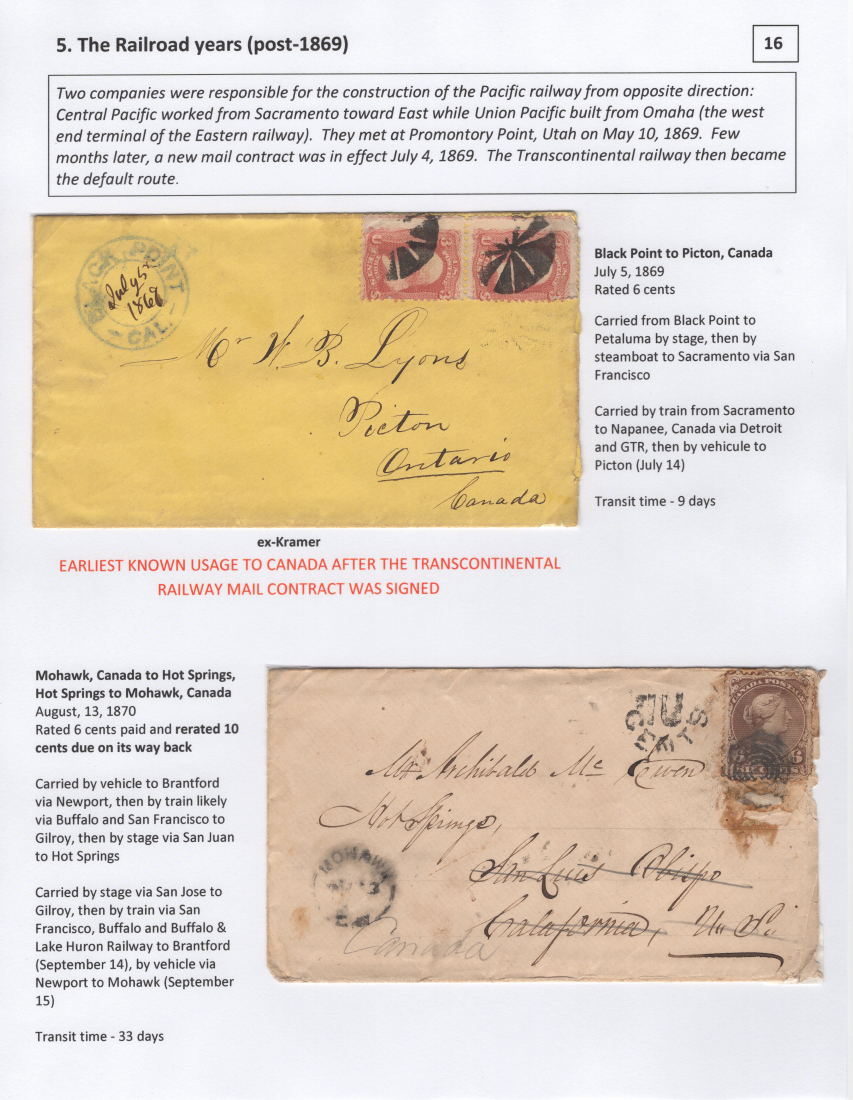 5. The Railroad years (post-1869)
16
Two companies were responsible for the construction of the Pacific railway from opposite direction:
Central Pacific worked from Sacramento toward East while Union Pacific built from Omaha (the west
end terminal of the Eastern railway). They met at Promontory Point, Utah on May 10, 1869. Few
months later, a new mail contract was in effect July 4, 1869. The Transcontinental railway then became
the default route.
BLACK POINT
CAL.
July 5
1869
Mr W. B. Lyons
Picton
Ontario
Canada
Black Point to Picton, Canada
July 5, 1869
Rated 6 cents
Carried from Black Point to
Petaluma by stage, then by
steamboat to Sacramento via San
Francisco
Carried by train from Sacramento
to Napanee, Canada via Detroit
and GTR, then by vehicule to
Picton (July 14)
Transit time - 9 days
ex-Kramer
EARLIEST KNOWN USAGE TO CANADA AFTER THE TRANSCONTINENTAL
RAILWAY MAIL CONTRACT WAS SIGNED
Mohawk, Canada to Hot Springs,
Hot Springs to Mohawk, Canada
August, 13, 1870
Rated 6 cents paid and rerated 10
cents due on its way back
Carried by vehicle to Brantford
via Newport, then by train likely
via Buffalo and San Francisco to
Gilroy, then by stage via San Juan
to Hot Springs
Carried by stage via San Jose to
Gilroy, then by train via San
Francisco, Buffalo and Buffalo &
Lake Huron Railway to Brantford
(September 14), by vehicle via
Newport to Mohawk (September
15)
Transit time - 33 days
CANADA POSTAGE
6
Mr Archibald Mc Ewen
Hot Springs,
San Luis Obispo
Calafornia, U. S.
MOHAWK
Canada